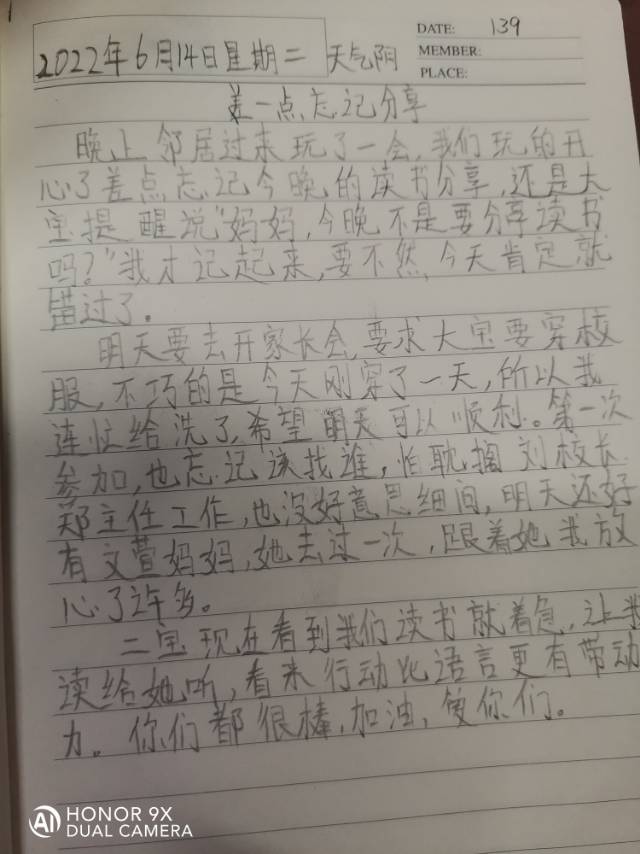 DATE: 139
MEMBER:
PLACE:
2022年6月14日星期二 天气阴
差一点忘记分享
晚上邻居过来玩了一会,我们玩的开
心了差点忘记今晚的读书分享,还是大
宝提醒说"妈妈,今晚不是要分享读书
吗?"我才记起来,要不然,今天肯定就
错过了。
明天要去开家长会,要求大宝要穿校
服,不巧的是今天刚穿了一天,所以我
连忙给洗了,希望明天可以顺利。第一次
参加,也忘记该找谁,怕耽搁刘校长
郑主任工作,也没好意思细问,明天还好
有文萱妈妈,她去过一次,跟着她我放
心了许多。
二宝现在看到我们读书就着急,让我
读给她听,看来行动比语言更有带动
力。你们都很棒,加油,爱你们。
HONOR 9X
AI DUAL CAMERA